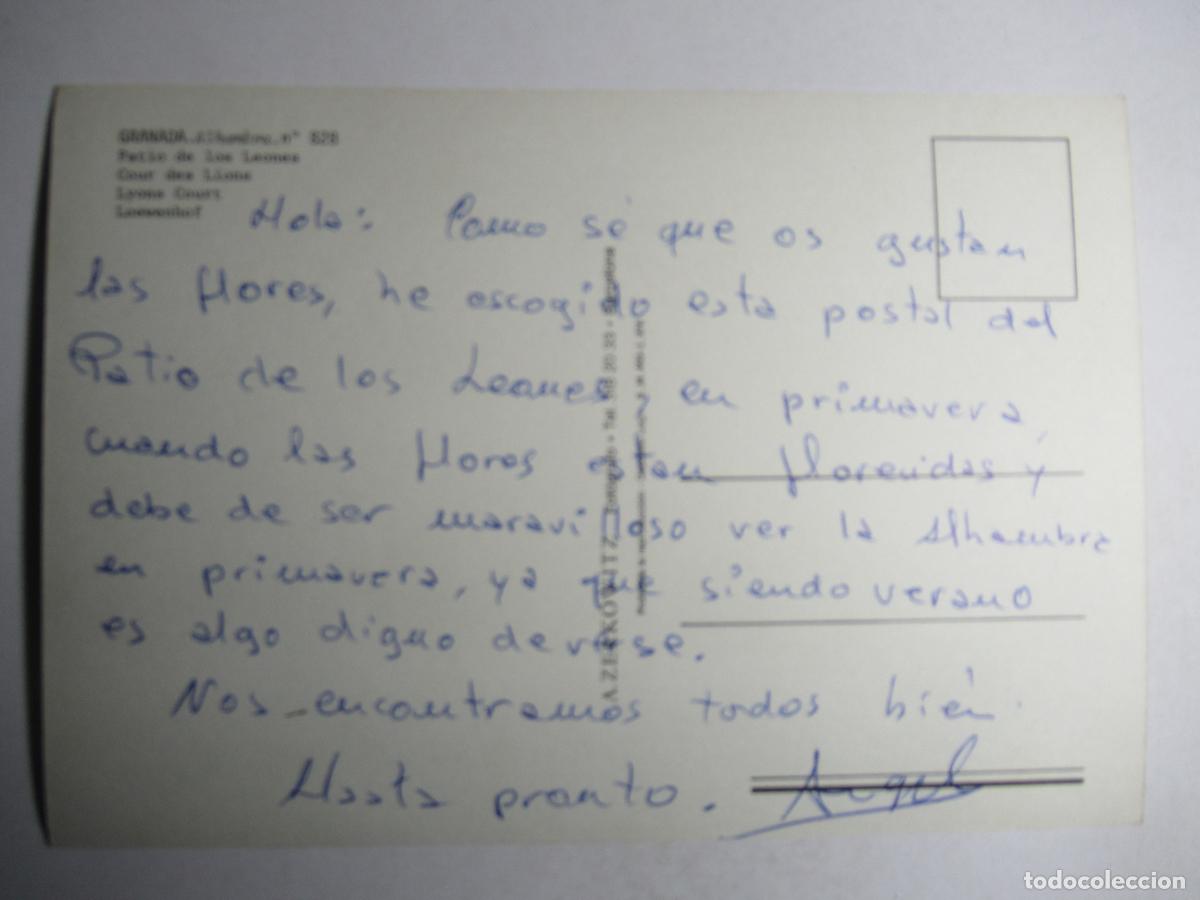 GRANADA.Alhambra.n° 828
Patio de los Leones
Cour des Lions
Lyons Court
Loewenhof
Hola: Como sé que os gustan
las flores, he escogido esta postal del
Patio de los Leones, en primavera,
cuando las flores estan florecidas y
debe de ser maravilloso ver la Alhambra
en primavera, ya que siendo verano
es algo digno de verse.
Nos encontramos todos bién.
Hasta pronto. Angel
A. ZERKOWITZ Barcelona
todocoleccion